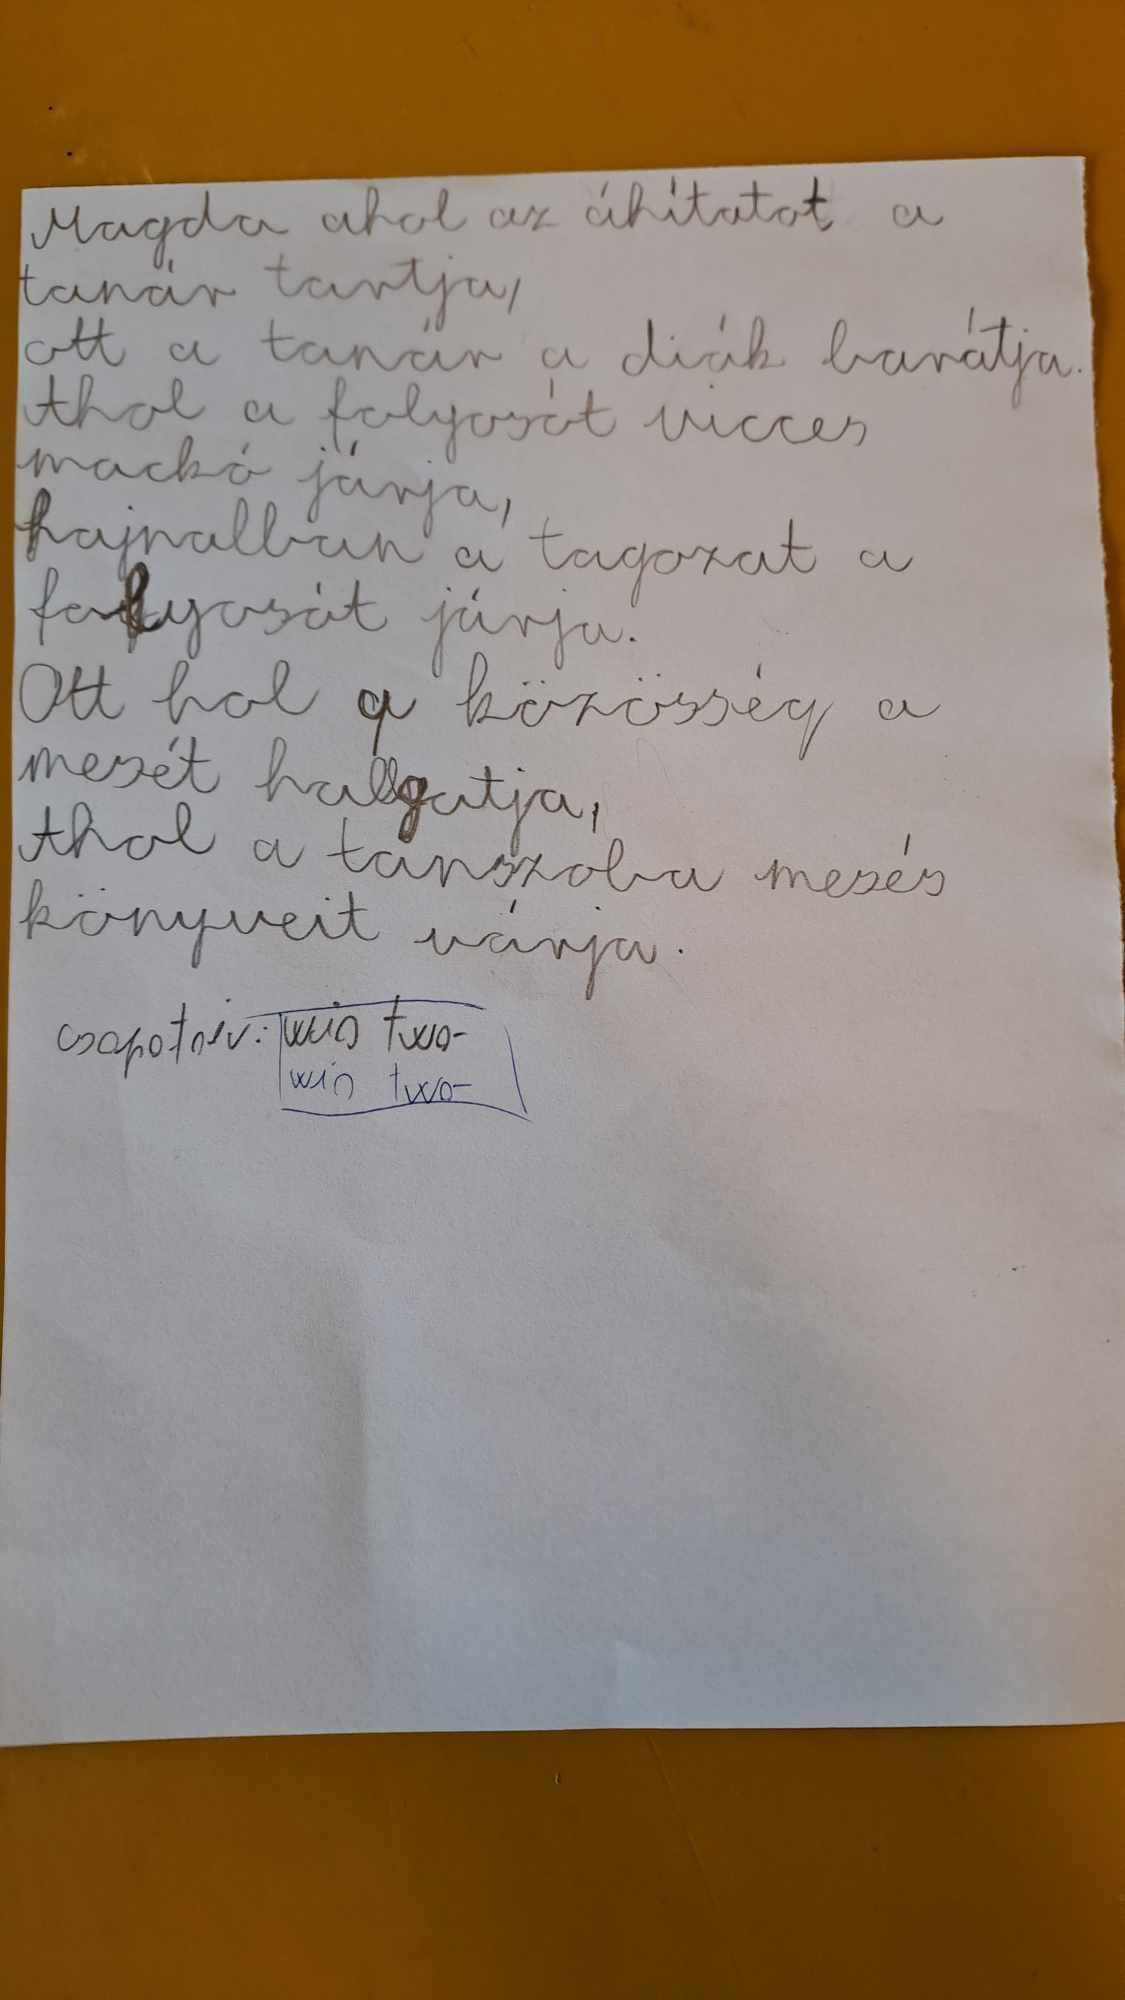 Magda ahol az áhítatot a
tanár tartja,
ott a tanár a diák barátja.
Ahol a folyosót vicces
mackó járja,
hajnalban a tagozat a
folyosót járja.
Ott hol a közösség a
mesét hallgatja,
Ahol a tanszoba mesés
könyveit várja.
csapatnév: win two
win two